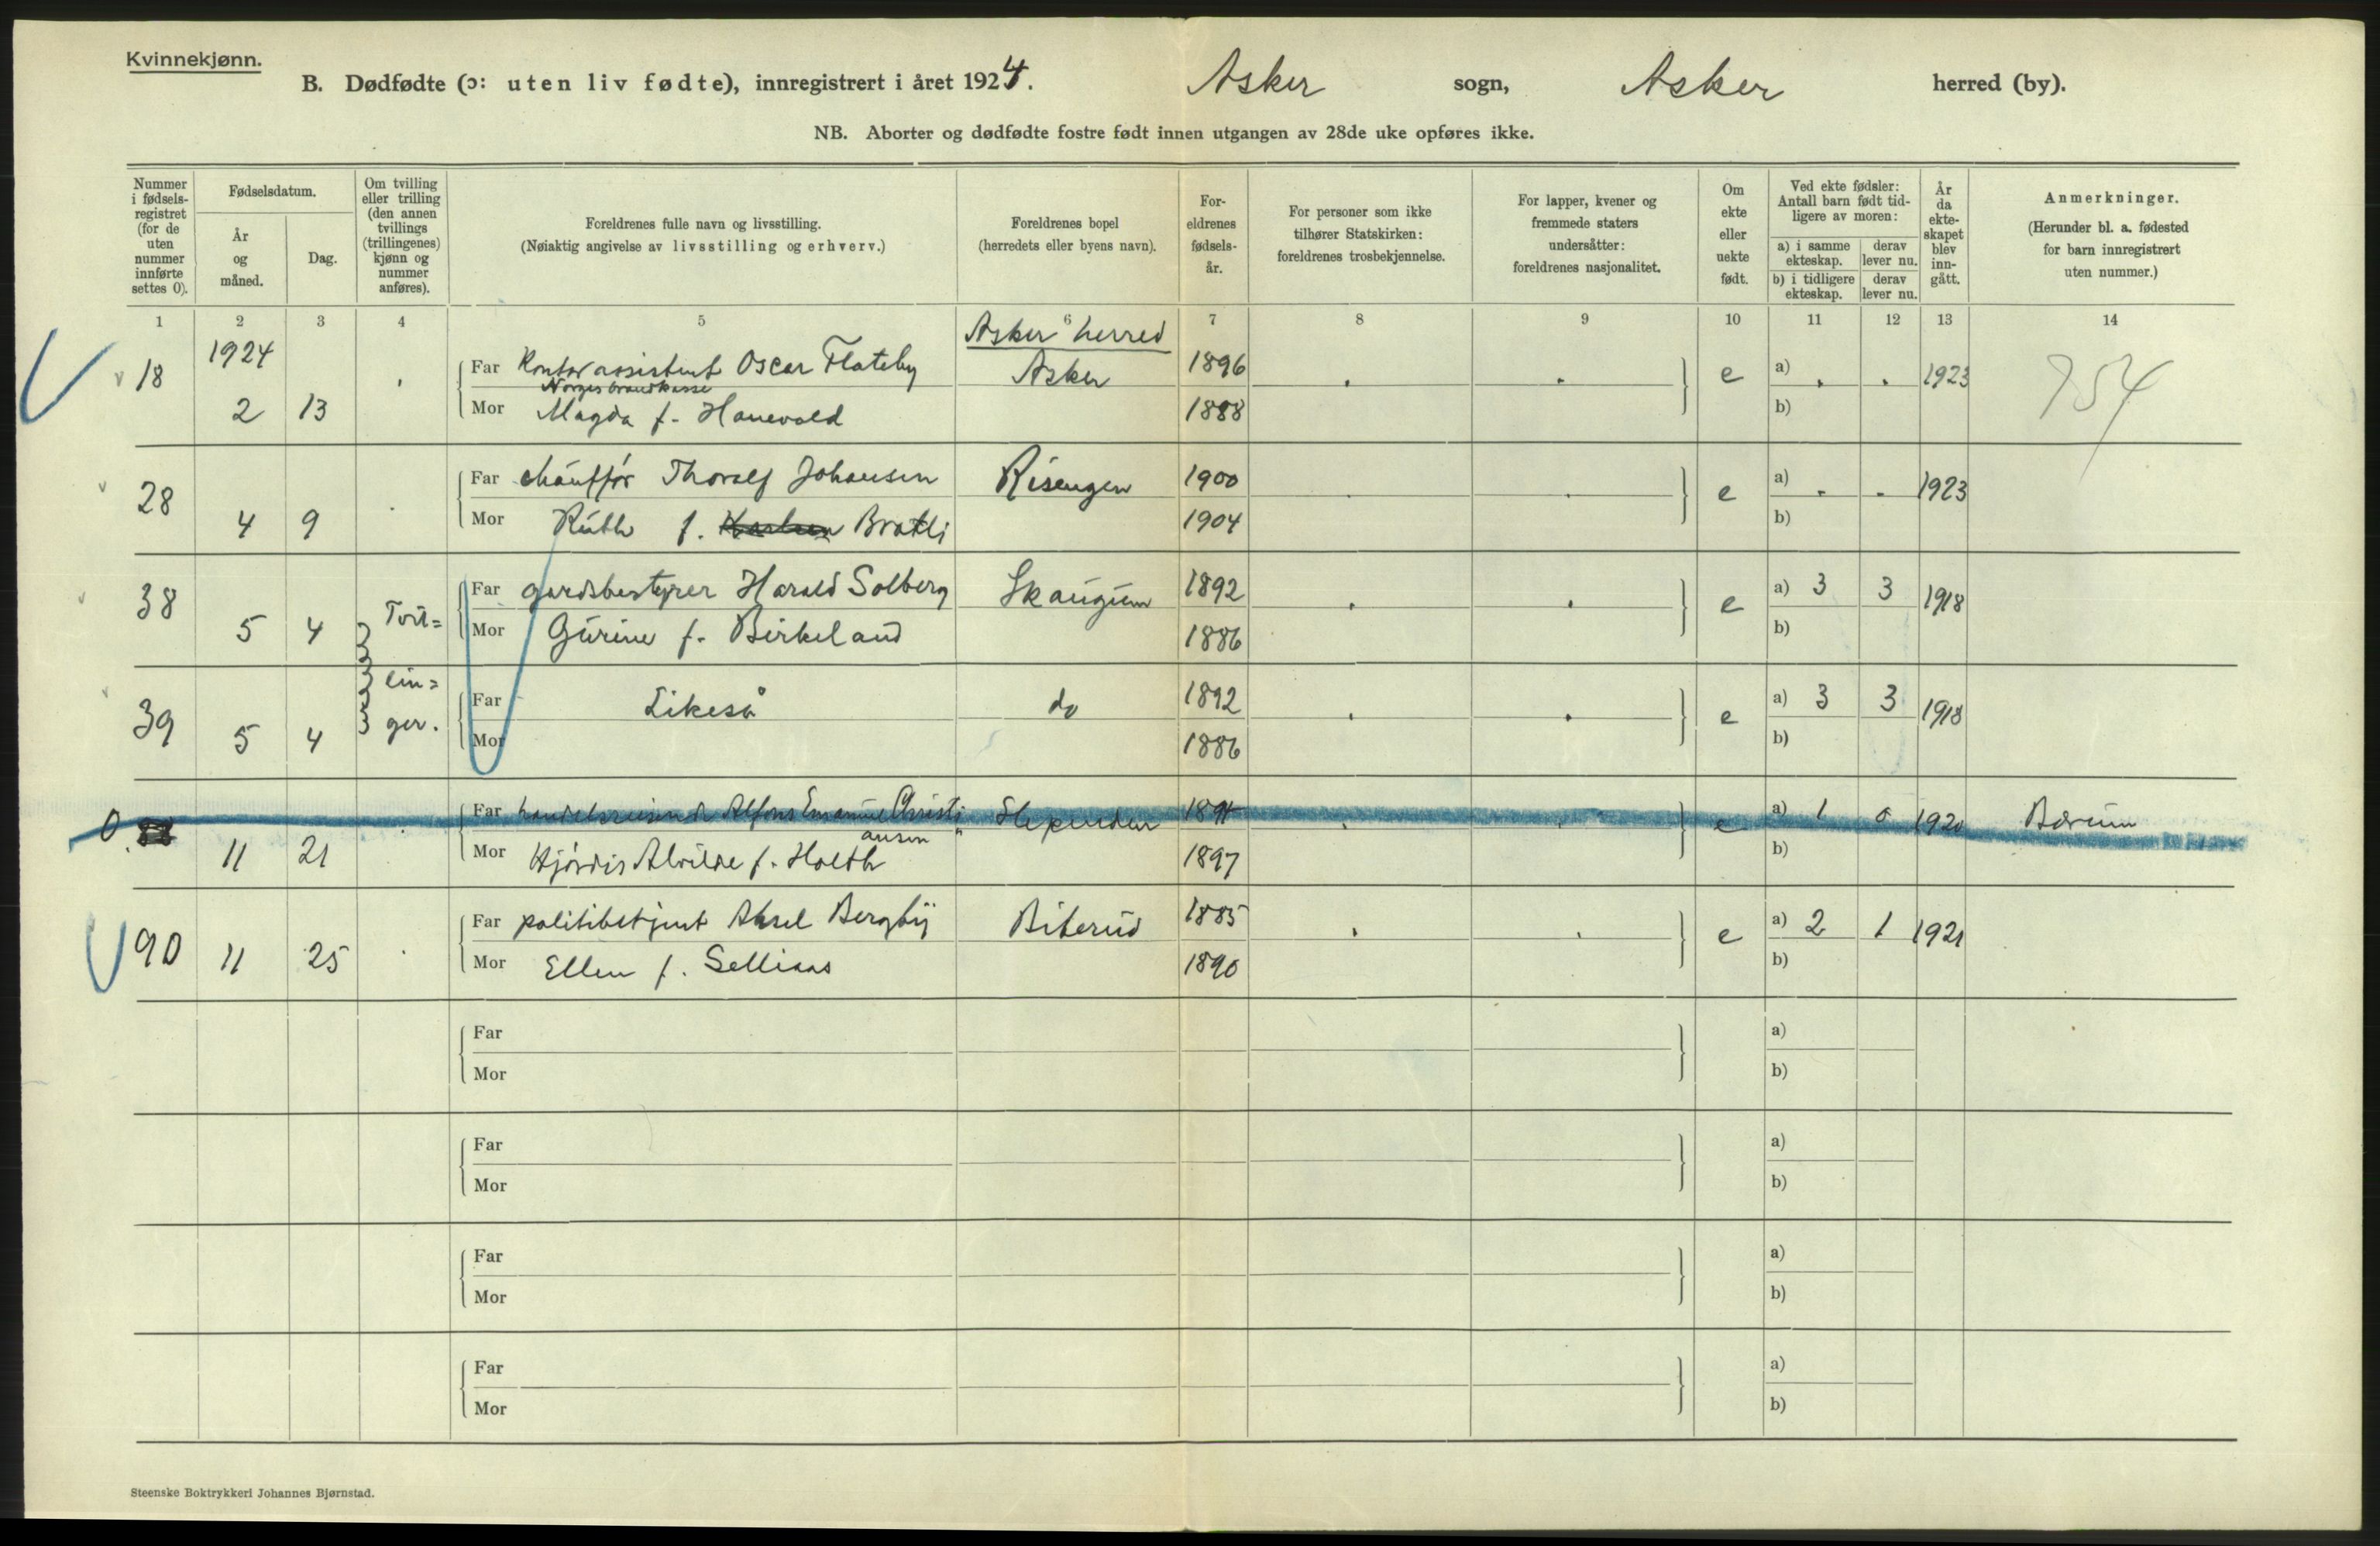 Kvinnekjønn.
B. Dødfødte (ɔ: uten liv fødte), innregistrert i året 1924. Asker sogn, Asker herred (by).
NB. Aborter og dødfødte fostre født innen utgangen av 28de uke opføres ikke.
Nummer i fødsels-registret (for de uten nummer innførte settes 0).
Fødselsdatum.
År og måned.
Dag.
Om tvilling eller trilling (den annen tvillings (trillingenes) kjønn og nummer anføres).
Foreldrenes fulle navn og livsstilling.
(Nøiaktig angivelse av livsstilling og erhverv.)
Foreldrenes bopel
(herredets eller byens navn).
For-eldrenes fødsels-år.
For personer som ikke tilhører Statskirken: foreldrenes trosbekjennelse.
For lapper, kvener og fremmede staters undersåtter: foreldrenes nasjonalitet.
Om ekte eller uekte født.
Ved ekte fødsler: Antall barn født tid-ligere av moren:
a) i samme ekteskap. derav lever nu.
b) i tidligere ekteskap. derav lever nu.
År da ekte-skapet blev inn-gått.
Anmerkninger.
(Herunder bl. a. fødested for barn innregistrert uten nummer.)
1 2 3 4 5 6 7 8 9 10 11 12 13 14
Asker herred
1924
18 Far Kontorassistent Oscar Flateby Asker 1896 e a) 1923 754
Norges brandkasse
2 13 Mor Magda f. Hanevold 1888 b)
28 Far chauffør Thoralf Johansen Risengen 1900 e a) 1923
4 9 Mor Ruth f. Bratli 1904 b)
38 Far gardsbestyrer Harald Solberg Skaugum 1892 e a) 3 3 1918
5 4 Tvil= Mor Gurine f. Birkeland 1886 b)
39 lin= Far Likeså do 1892 e a) 3 3 1918
5 4 ger. Mor 1886 b)
0. Far handelsreisende Alfons Emanuel Christi Slependen 1891 e a) 1 0 1920 Bærum
ansen
11 21 Mor Hjørdis Alvilde f. Holth 1897 b)
90 Far politibetjent Aksel Bergby Biterud 1885 e a) 2 1 1921
11 25 Mor Ellen f.Selliaas 1890 b)
Far a)
Mor b)
Far a)
Mor b)
Far a)
Mor b)
Far a)
Mor b)
Steenske Boktrykkeri Johannes Bjørnstad.